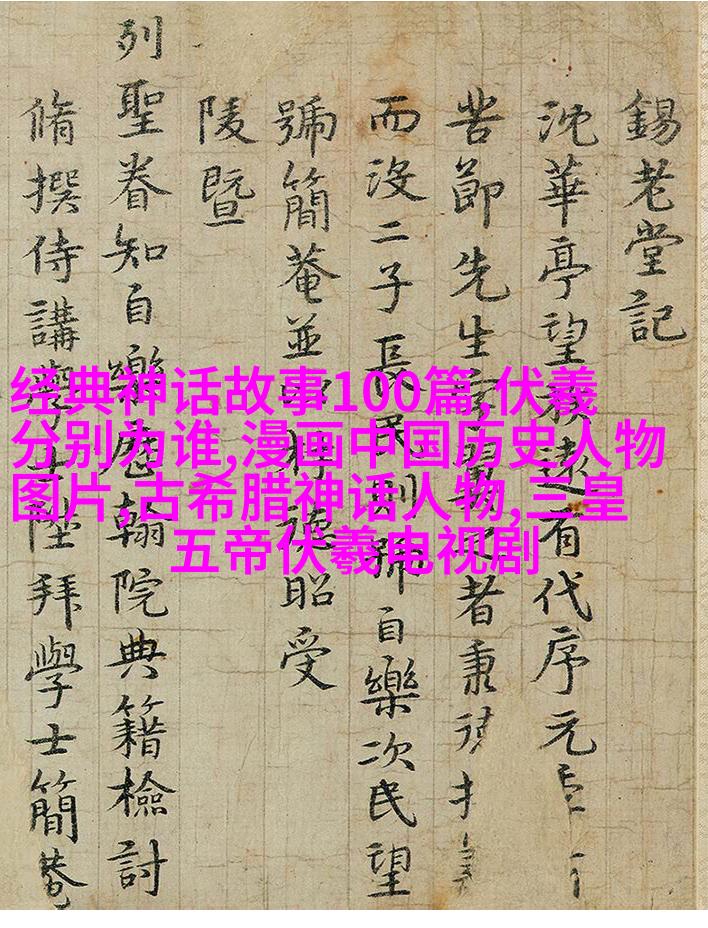 经典神话故事100篇,伏羲
分别为谁,漫画中国历史人物
图片,古希腊神话人物,三皇
五帝伏羲电视剧
錫老堂記
沈華亭望族遠有代序元
苦節先生者秉
而没二子長民則號自樂次民望
號簡菴並昭受
陵暨
列聖眷知自樂歷翰院典籍檢討
脩撰侍講學士陞拜學士簡菴